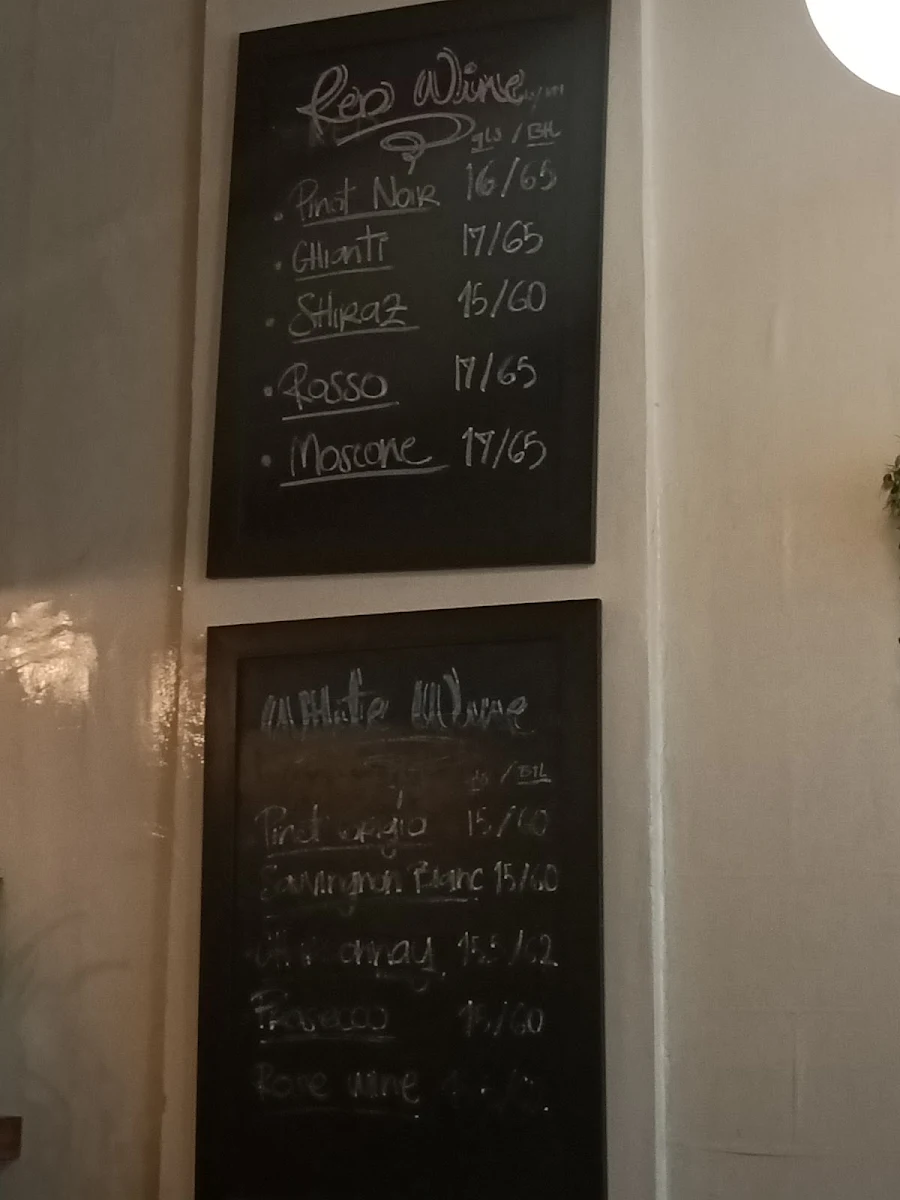 Red Wine
gls / Btl
• Pinot Noir 16/65
• CHianti 17/65
• SHiRaZ 15/60
• Rosso 17/65
• Moscone 17/65
White Wine
/ BtL
Pinot grigio 15/60
Sauvingnon Blanc 15/60
/62
Prosecco 15/60
Rose wine